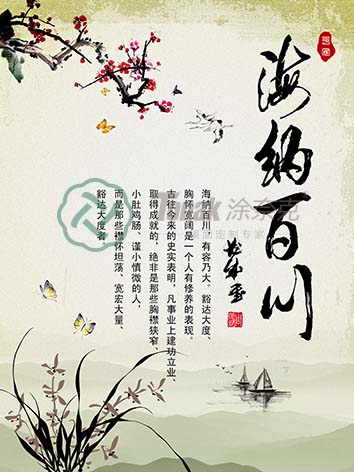 海纳百川
海纳百川，有容乃大。豁达大度、
胸怀宽阔是一个人有修养的表现。
古往今来的史实表明，凡事业上建功立业、
取得成就的，绝非是那些胸襟狭窄、
小肚鸡肠、谨小慎微的人，
而是那些襟怀坦荡、宽宏大量、
豁达大度者
涂奈克
定制专家